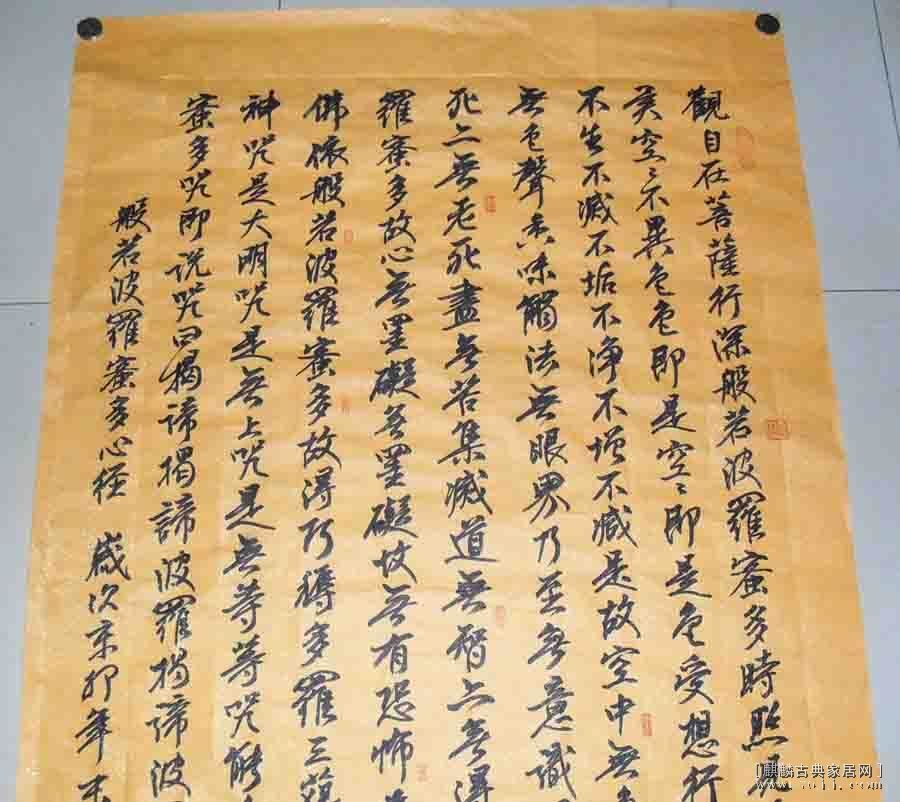 觀自在菩薩行深般若波羅蜜多時照
異空〻不異色色即是空〻即是色受想行
不生不滅不垢不淨不增不減是故空中無
無色聲香味觸法無眼界乃至無意識
死亦無老死盡無苦集滅道無智亦無得
羅蜜多故心無罣礙無罣礙故無有恐怖
佛依般若波羅蜜多故得阿耨多羅三藐
神咒是大明咒是無上咒是無等等咒能
蜜多咒即说咒曰揭諦揭諦波羅揭諦波
般若波羅蜜多心经 歲次辛卯年
[麒麟古典家居网]